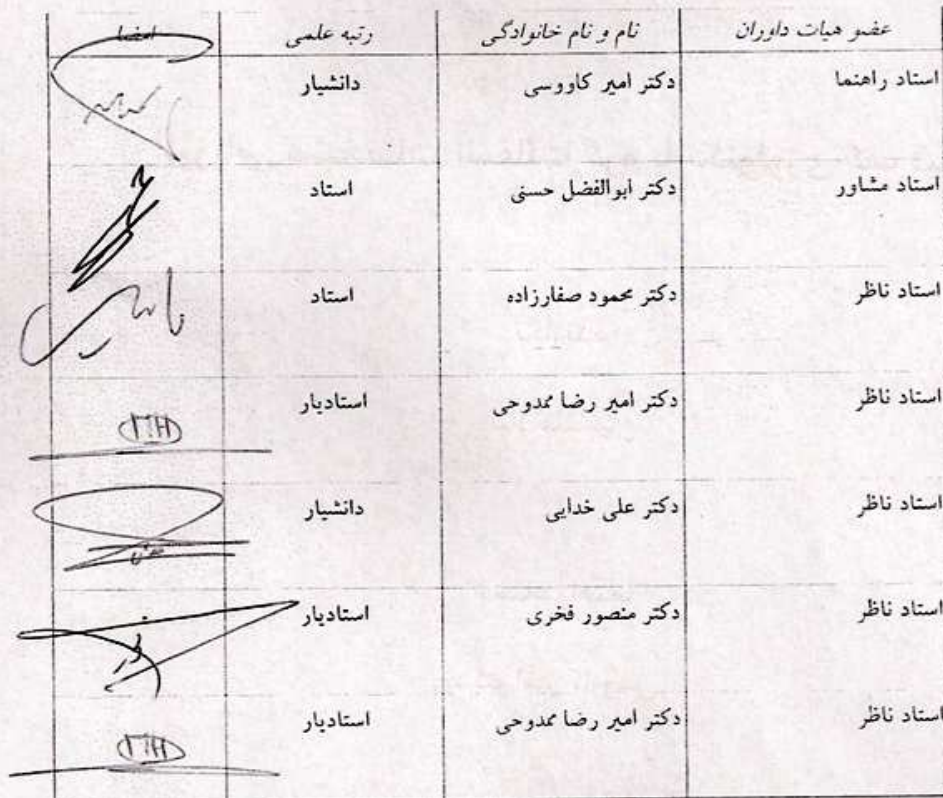 عضو هیات داوران نام و نام خانوادگی رتبه علمی امضا
استاد راهنما دکتر امیر کاووسی دانشیار
استاد مشاور دکتر ابوالفضل حسنی استاد
استاد ناظر دکتر محمود صفارزاده استاد
استاد ناظر دکتر امیر رضا ممدوحی استادیار
استاد ناظر دکتر علی خدایی دانشیار
استاد ناظر دکتر منصور فخری استادیار
استاد ناظر دکتر امیر رضا ممدوحی استادیار